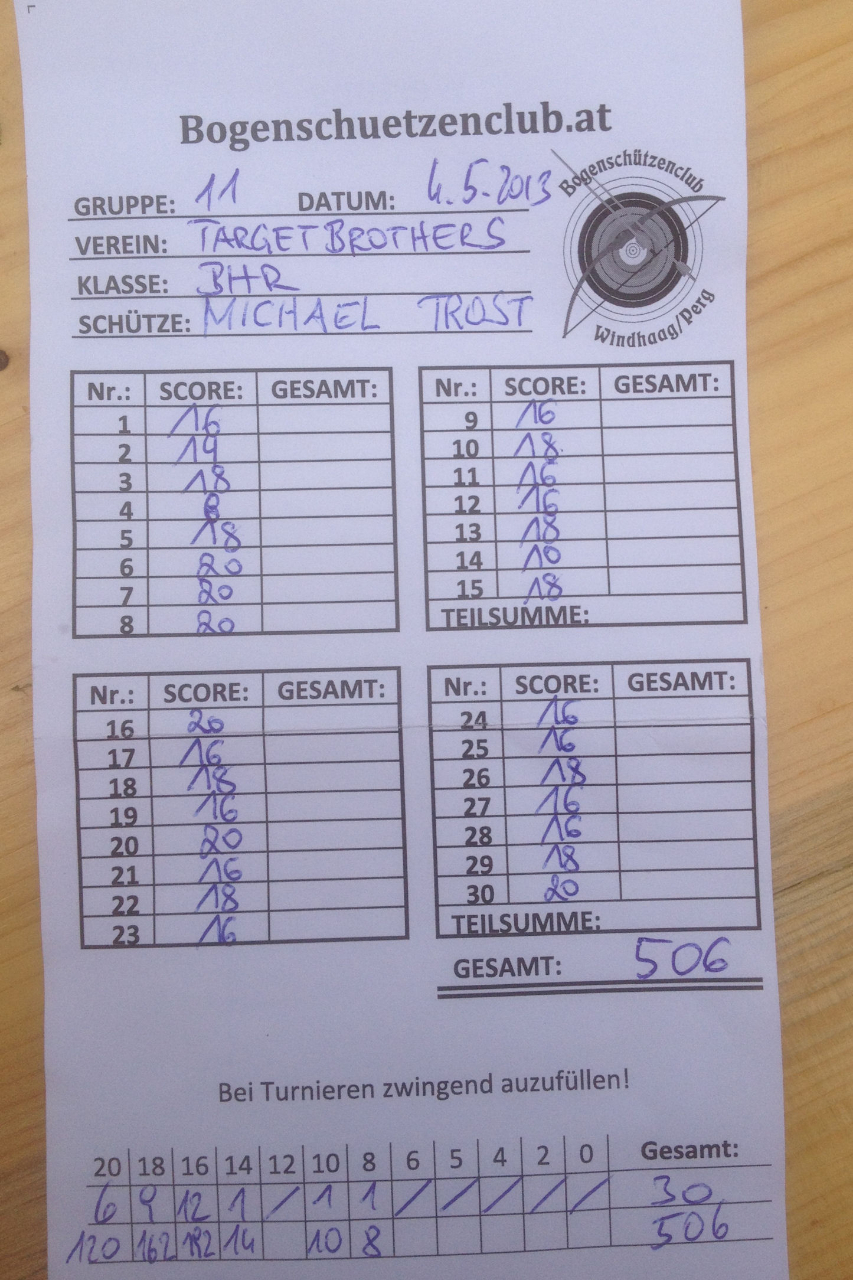 Bogenschuetzenclub.at
Bogenschützenclub
Windhaag/Perg
GRUPPE: 11 DATUM: 4.5.2013
VEREIN: TARGETBROTHERS
KLASSE: BHR
SCHÜTZE: MICHAEL TROST
Nr.: SCORE: GESAMT:
1 16
2 14
3 18
4 8
5 18
6 20
7 20
8 20
Nr.: SCORE: GESAMT:
9 16
10 18
11 16
12 16
13 18
14 10
15 18
TEILSUMME:
Nr.: SCORE: GESAMT:
16 20
17 16
18 18
19 16
20 20
21 16
22 18
23 16
Nr.: SCORE: GESAMT:
24 16
25 16
26 18
27 16
28 16
29 18
30 20
TEILSUMME:
GESAMT: 506
Bei Turnieren zwingend auzufüllen!
20 18 16 14 12 10 8 6 5 4 2 0 Gesamt:
6 9 12 1 / 1 1 / / / / / 30
120 162 192 14 10 8 506